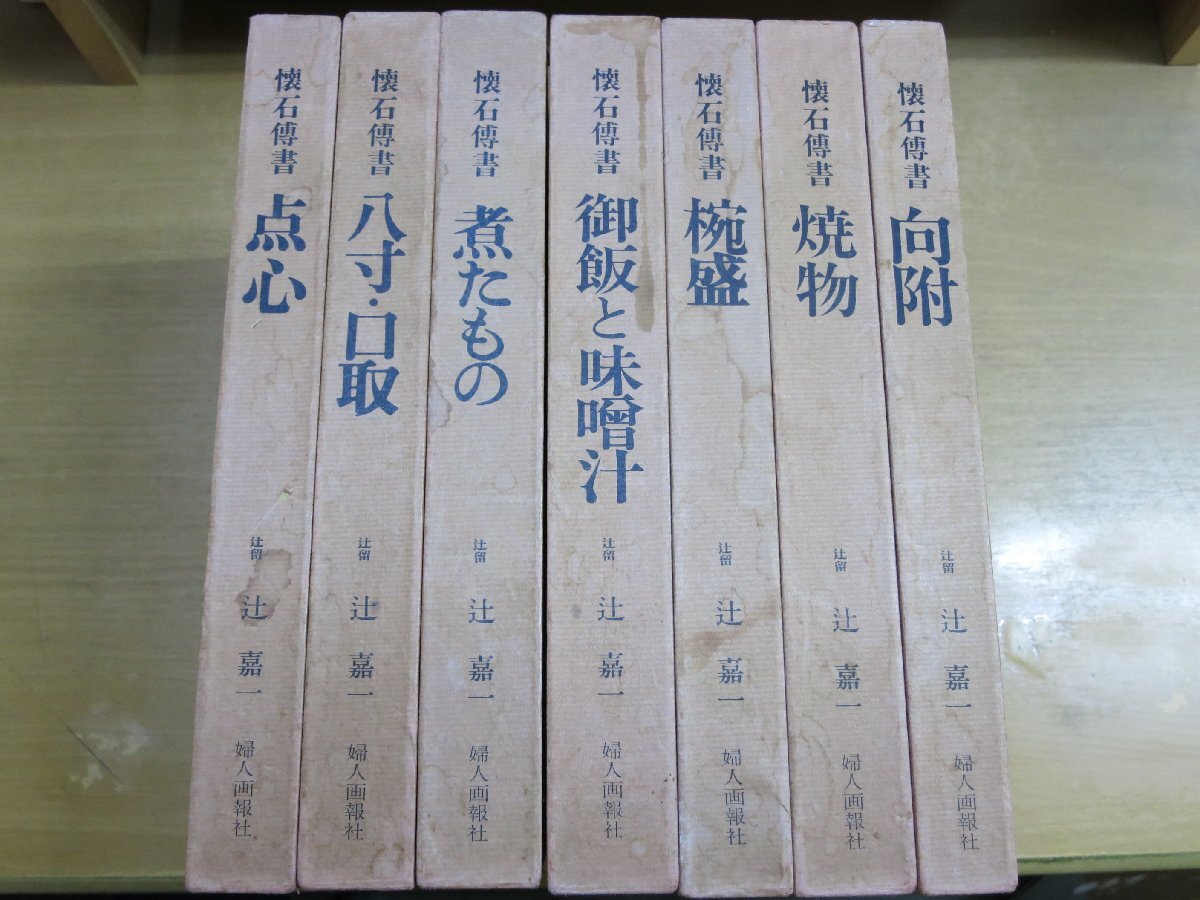 懐石傳書
向附
辻留
辻嘉一
婦人画報社
懐石傳書
焼物
辻留
辻嘉一
婦人画報社
懐石傳書
椀盛
辻留
辻嘉一
婦人画報社
懐石傳書
御飯と味噌汁
辻留
辻嘉一
婦人画報社
懐石傳書
煮たもの
辻留
辻嘉一
婦人画報社
懐石傳書
八寸・口取
辻留
辻嘉一
婦人画報社
懐石傳書
点心
辻留
辻嘉一
婦人画報社